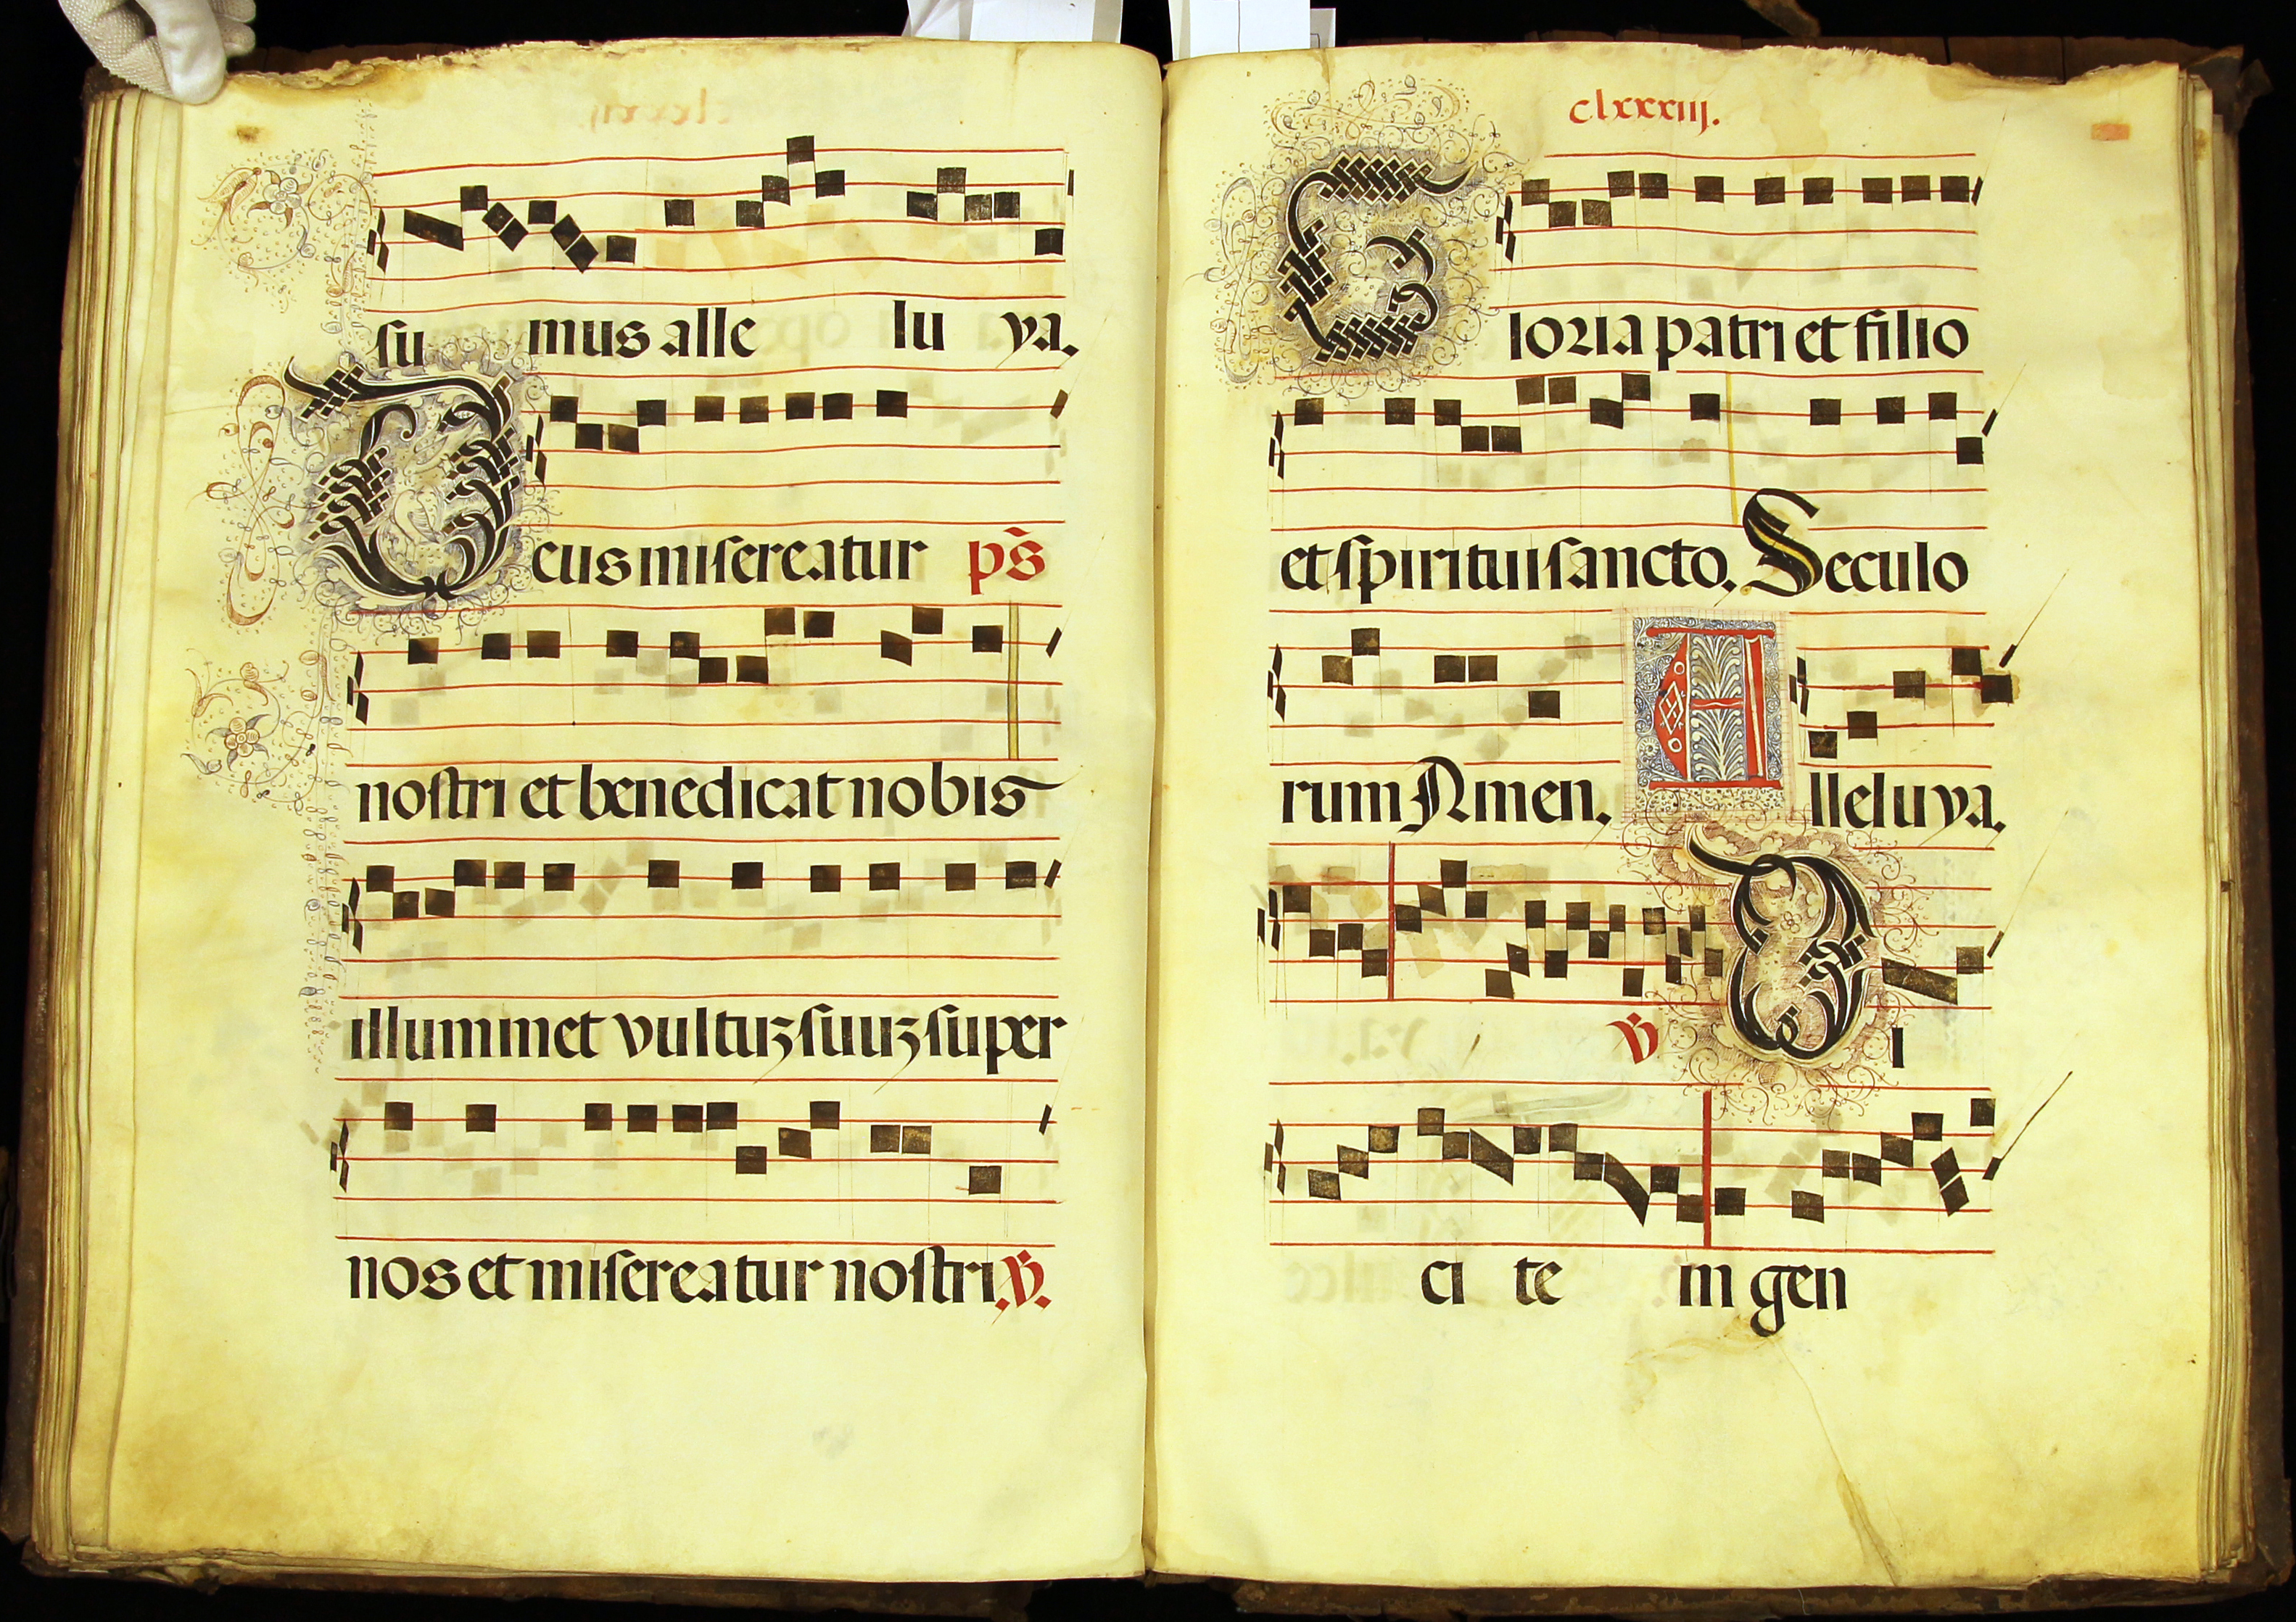 su mus alle lu ya.
Deus misereatur ps̃
nostri et benedicat nobis
illuminet vultuʒ suuʒ super
nos et misereatur nostri. ꝟ.
clxxxiij.
Gloria patri et filio
et spiritui sancto. Seculo
rum Amen. Alleluya.
ꝟ Di
ci te in gen